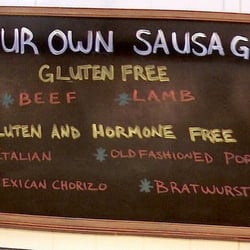 UR OWN SAUSAG
GLUTEN FREE
*BEEF *LAMB
LUTEN AND HORMONE FREE
TALIAN *OLD FASHIONED POR
EXICAN CHORIZO *BRATWURST